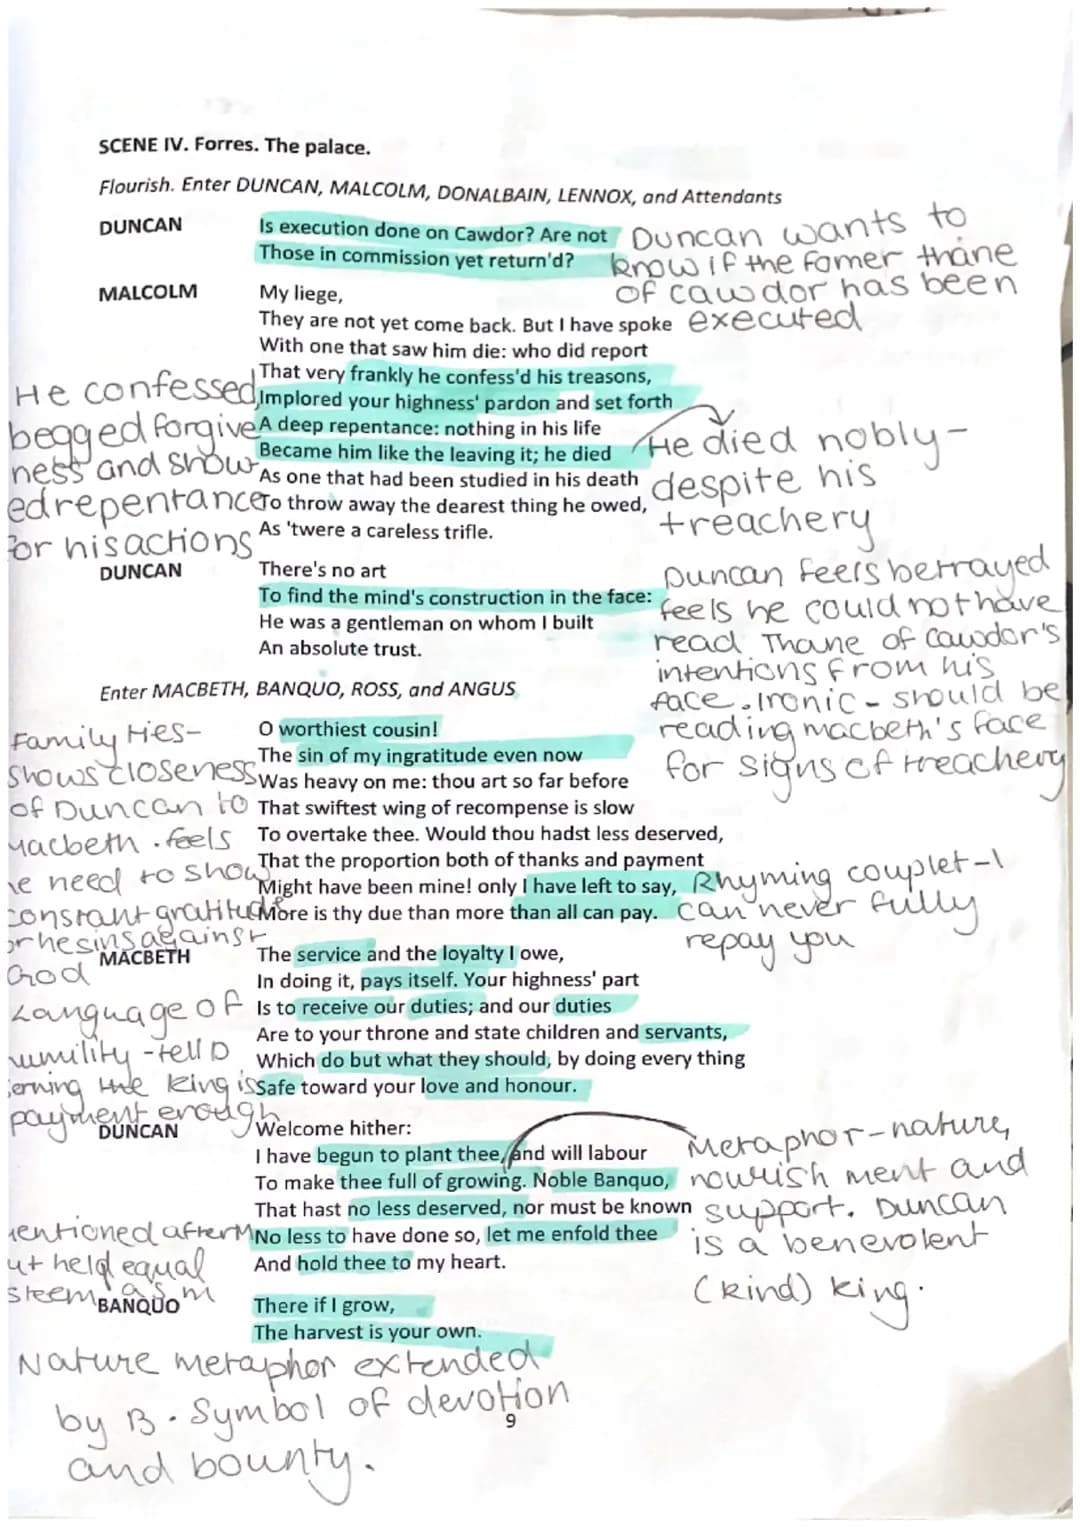 SCENE IV. Forres. The palace.
Flourish. Enter DUNCAN, MALCOLM, DONALBAIN, LENNOX, and Attendants
DUNCAN
Is execution done on Cawdor? Are not
Those in commission yet return'd?
Duncan wants to
know if the fomer thane
of cawdor has been
executed
MALCOLM
My liege,
They are not yet come back. But I have spoke
With one that saw him die: who did report
That very frankly he confess'd his treasons,
Implored your highness' pardon and set forth
A deep repentance: nothing in his life
Became him like the leaving it; he died
As one that had been studied in his death
To throw away the dearest thing he owed,
As 'twere a careless trifle.
He confessed,
begged forgive
ness and show
ed repentance
for his actions
He died nobly-
despite his
treachery
DUNCAN
There's no art
To find the mind's construction in the face:
He was a gentleman on whom I built
An absolute trust.
Duncan feels betrayed
feels he could not have
read Thane of Cawdor's
intentions from his
face. Ironic - should be
reading macbeth's face
for signs of treachery
Enter MACBETH, BANQUO, ROSS, and ANGUS
O worthiest cousin!
The sin of my ingratitude even now
Was heavy on me: thou art so far before
That swiftest wing of recompense is slow
To overtake thee. Would thou hadst less deserved,
That the proportion both of thanks and payment
Might have been mine! only I have left to say,
More is thy due than more than all can pay.
Family ties-
shows closeness
of Duncan to
Macbeth. feels
he need to show
constant gratitude
or he sins against
God
Rhyming couplet-I
can never fully
repay you
MACBETH
The service and the loyalty I owe,
In doing it, pays itself. Your highness' part
Is to receive our duties; and our duties
Are to your throne and state children and servants,
Which do but what they should, by doing every thing
Safe toward your love and honour.
Language of
humility - tell D
serving the king is
payment enough
DUNCAN
Welcome hither:
I have begun to plant thee, and will labour
To make thee full of growing. Noble Banquo,
That hast no less deserved, nor must be known
No less to have done so, let me enfold thee
And hold thee to my heart.
Metaphor-nature,
nourish ment and
support. Duncan
is a benevolent
(kind) king.
mentioned after M
but held equal
esteem as m
BANQUO
There if I grow,
The harvest is your own.
Nature metaphor extended
by B. Symbol of devotion
and bounty.
9